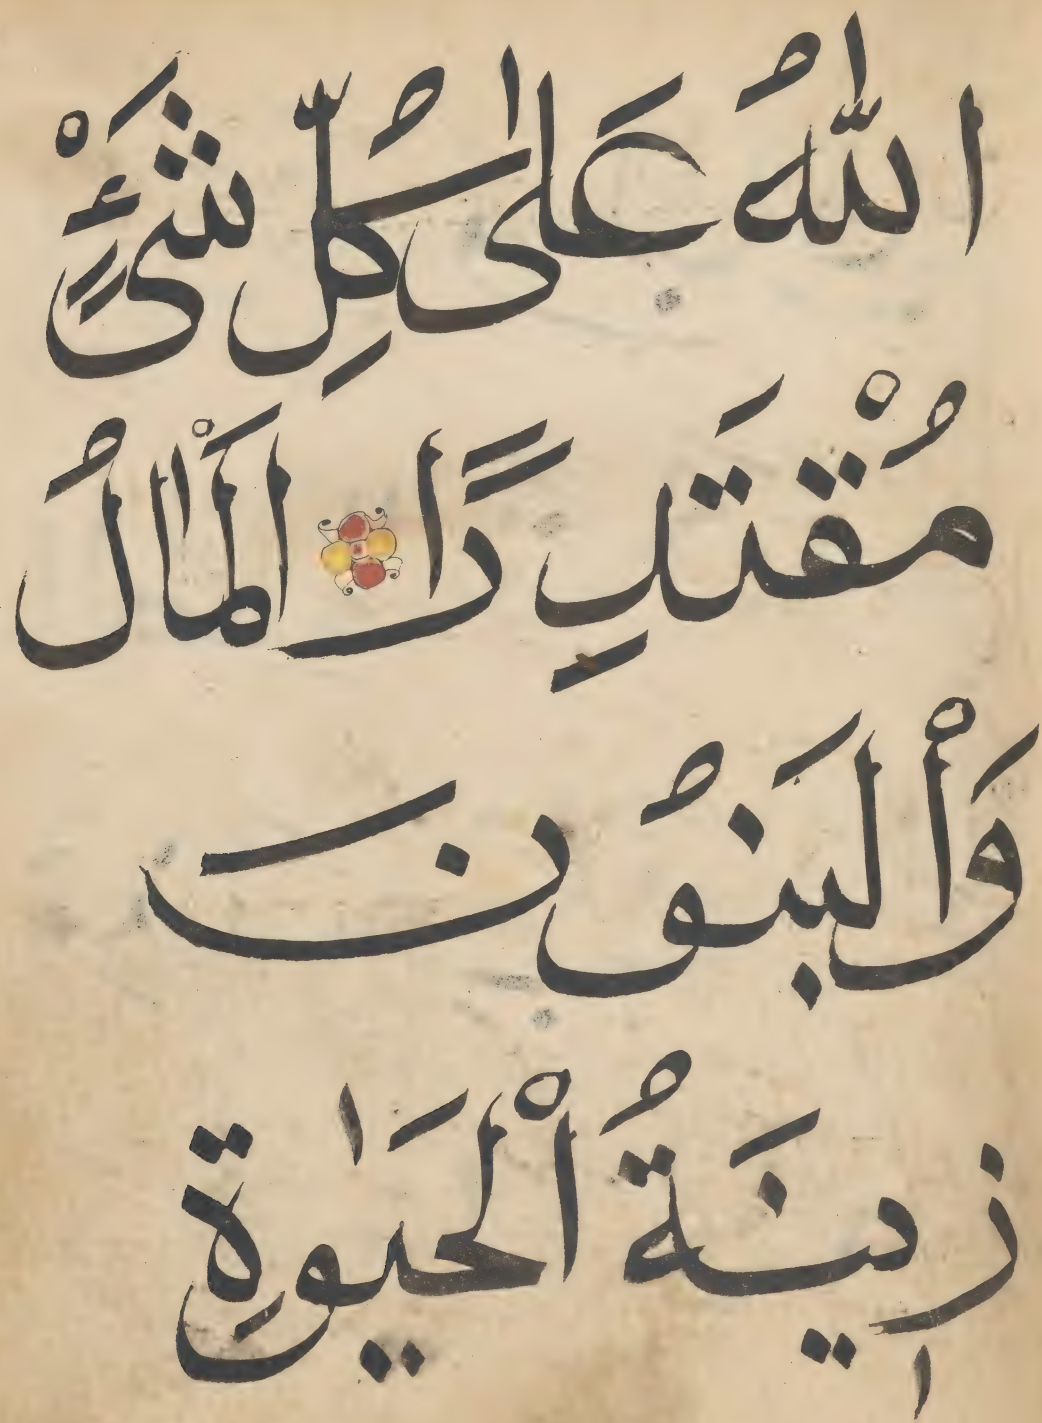 اللّٰهُ عَلٰى كُلِّ شَىْءٍ
مُقْتَدِرًا الْمَالُ
وَالْبَنُونَ
زِينَةُ الْحَيَوٰةِ